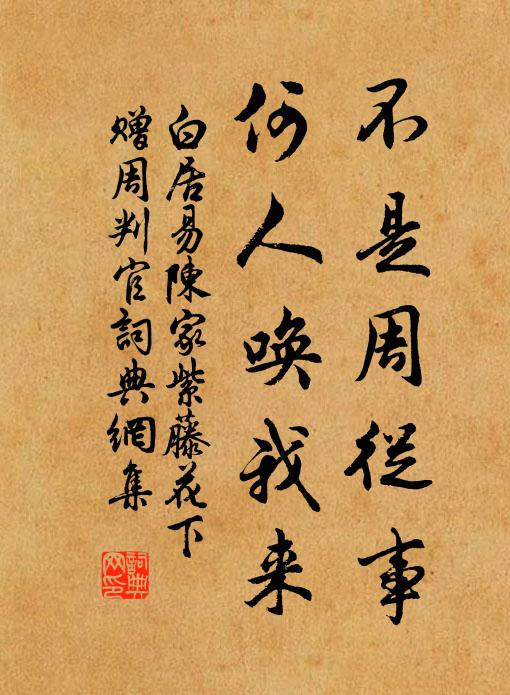 不是周從事
何人唤我来
白居易陳家紫藤花下
贈周判官詞典網集
詞典
网印